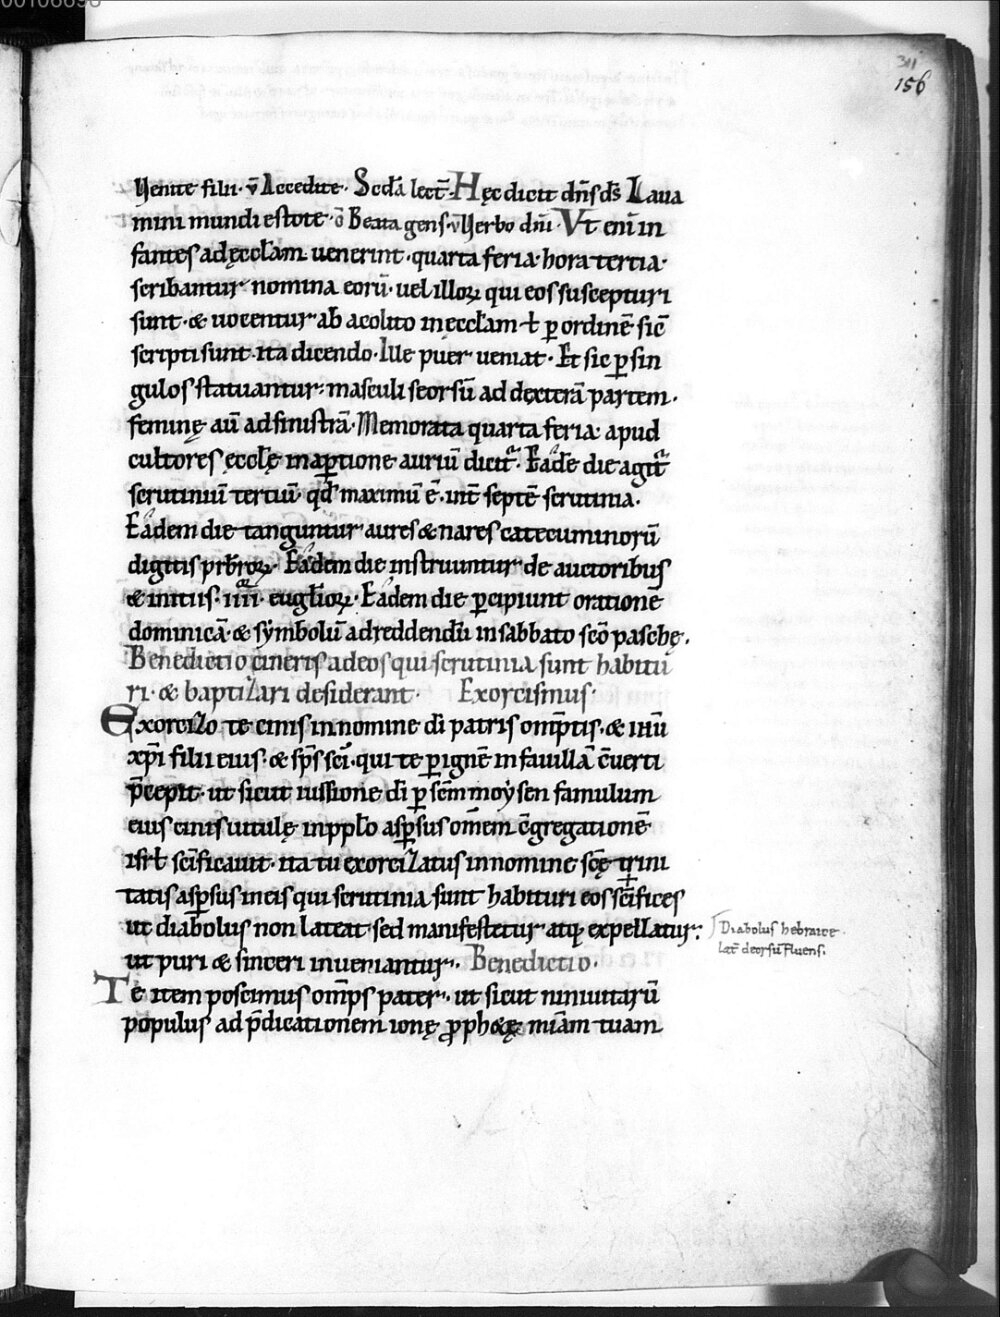 00106698
311
156
Uenite filii · v̄ Accedite · Scďa lect̄ · Hęc dicit dn̄s ds̄ Laua
mini mundi estote · ō Beata gens · v̄ Uerbo dn̄i · Vt eni in
fantes ad ęcctam uenerint · quarta feria · hora tertia ·
scribantur nomina eorū · uel illoꝝ qui eos suscepturi
sunt · & uocentur ab acolito in ęccłam ł ꝑ ordinē sic̄
scripti sunt · ita dicendo · Ille puer ueniat · Et sic ꝑ sin
gulos statuantur · masculi seorsū ad dexterā partem ·
feminę aū ad sinistrā · Memorata quarta feria · apud
cultores ęccłę inaꝑtione auriū dicit᷑ · Eadē die agit᷑
scrutiniū tertiū · qđ maximū ē · int̄ septē scrutinia ·
Eadem die tanguntur aures & nares catecuminorū
digitis prb̄roꝝ · Eadem die instruuntur de auctoribus
& initiis · iiii · eugłioꝝ · Eadem die ꝑcipiunt orationē
dominicā · & symbolū ad reddendū in sabbato sc̄o paschę ·
Benedictio cineris ad eos qui scrutinia sunt habitu
ri · & baptizari desiderant · Exorcismus ·
Exorcizo te cinis in nomine dī patris omp̄tis · & ihū
xp̄i filii eius · & sp̄s sc̄i · qui te ꝑ ignē in fauillā c̄uerti
p̄cepit · ut sicut iussione dī ꝑ sc̄m moẏsen famulum
eius cinis uitulę in ppło asꝑsus om̄em c̄gregationē
isrł sc̄ificauit · ita tu exorcizatus in nomine sc̄ę trini
tatis asꝑsus in eis qui scrutinia sunt habituri eos sc̄ifices
ut diabolus non lateat · sed manifestetur atq; expellatur ·
Diabolus hebraice ·
lat̄ deorsū fluens ·
ut puri & sinceri inueniantur · Benedictio ·
Te item poscimus omp̄s pater · ut sicut niniuitarū
populus ad p̄dicationem ionę ꝓph&ę mīam tuam